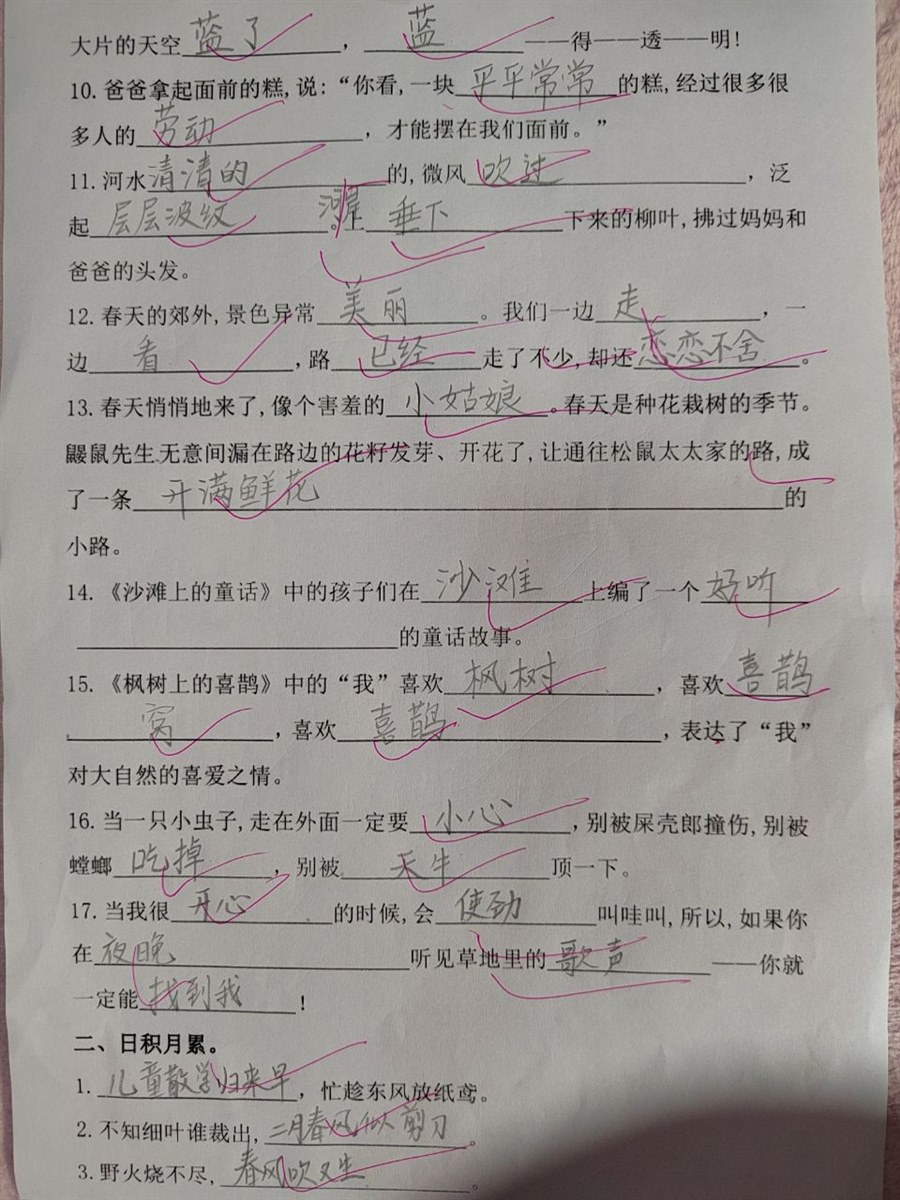 大片的天空蓝了，蓝——得——透——明!
10. 爸爸拿起面前的糕,说:“你看,一块平平常常的糕,经过很多很
多人的劳动，才能摆在我们面前。”
11. 河水清清的的,微风吹过，泛
起层层波纹。上垂下下来的柳叶,拂过妈妈和
爸爸的头发。
12. 春天的郊外,景色异常美丽。我们一边走，一
边看,路已经走了不少,却还恋恋不舍。
13. 春天悄悄地来了,像个害羞的小姑娘。春天是种花栽树的季节。
鼹鼠先生无意间漏在路边的花籽发芽、开花了,让通往松鼠太太家的路,成
了一条开满鲜花的
小路。
14.《沙滩上的童话》中的孩子们在沙滩上编了一个好听
的童话故事。
15.《枫树上的喜鹊》中的“我”喜欢枫树，喜欢喜鹊
窝,喜欢喜鹊,表达了“我”
对大自然的喜爱之情。
16. 当一只小虫子,走在外面一定要小心,别被屎壳郎撞伤,别被
螳螂吃掉，别被天牛顶一下。
17. 当我很开心的时候,会使劲叫哇叫,所以,如果你
在夜晚听见草地里的歌声——你就
一定能找到我!
二、日积月累。
1. 儿童散学归来早，忙趁东风放纸鸢。
2. 不知细叶谁裁出,二月春风似剪刀。
3. 野火烧不尽,春风吹又生。